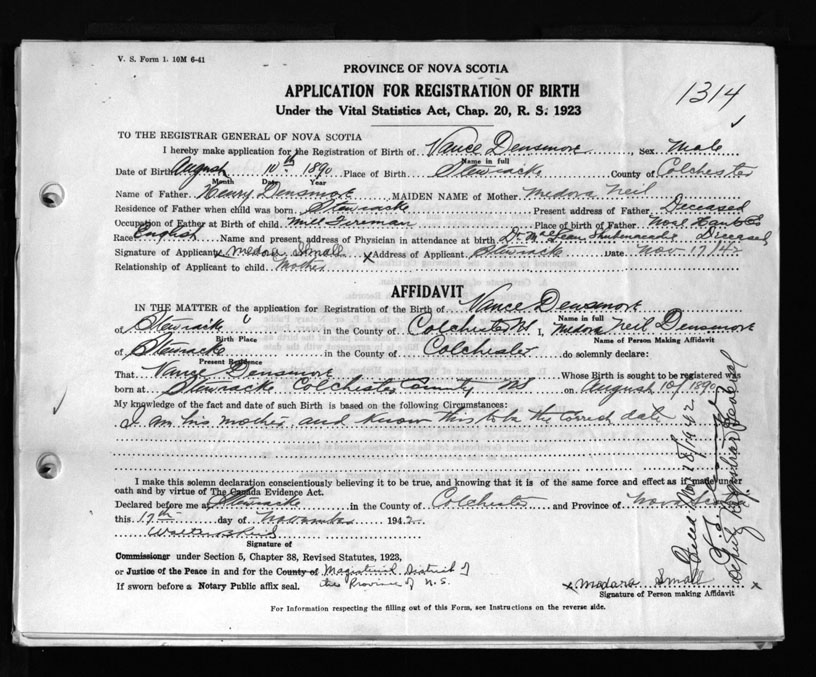 V. S. Form 1. 10M 6-41
PROVINCE OF NOVA SCOTIA
APPLICATION FOR REGISTRATION OF BIRTH
Under the Vital Statistics Act, Chap. 20, R. S. 1923
1314
TO THE REGISTRAR GENERAL OF NOVA SCOTIA
I hereby make application for the Registration of Birth of Vance Densmore, Sex Male
Name in full
Date of Birth August 10th 1890 Place of Birth Stewiacke County of Colchester
Month Date Year
Name of Father Henry Densmore, MAIDEN NAME of Mother Medora Neil
Residence of Father when child was born Stewiacke Present address of Father Deceased
Occupation of Father at Birth of child Mill Fireman Place of Birth of Father Nore
Race English Name and present address of Physician in attendance at birth Dr McLean Shubenacadie Deceased
Signature of Applicant x Medora Small x Address of Applicant Stewiacke Date Nov 17/42
Relationship of Applicant to child Mother
AFFIDAVIT
IN THE MATTER of the application for Registration of the Birth of Vance Densmore
Name in full
of Stewiacke in the County of Colchester NS I, Medora Neil Densmore
Birth Place Name of Person Making Affidavit
of Stewiacke in the County of Colchester do solemnly declare:
Present Residence
That Vance Densmore Whose Birth is sought to be registered was
born at Stewiacke Colchester County NS on August 10/1890
My knowledge of the fact and date of such Birth is based on the following Circumstances:
I am his mother and know this to be the correct date
I make this solemn declaration conscientiously believing it to be true, and knowing that it is of the same force and effect as if made under
oath and by virtue of The Canada Evidence Act.
Declared before me at Stewiacke in the County of Colchester and Province of Nova Scotia
this 17th day of November 1942
Signature of
Commissioner under Section 5, Chapter 38, Revised Statutes, 1923,
or Justice of the Peace in and for the County of Magisterial District of
If sworn before a Notary Public affix seal. the Province of N.S.
x Medora Small x
Signature of Person making Affidavit
For Information respecting the filling out of this Form, see Instructions on the reverse side.
Filed Nov 18/1942
Deputy Registrar General